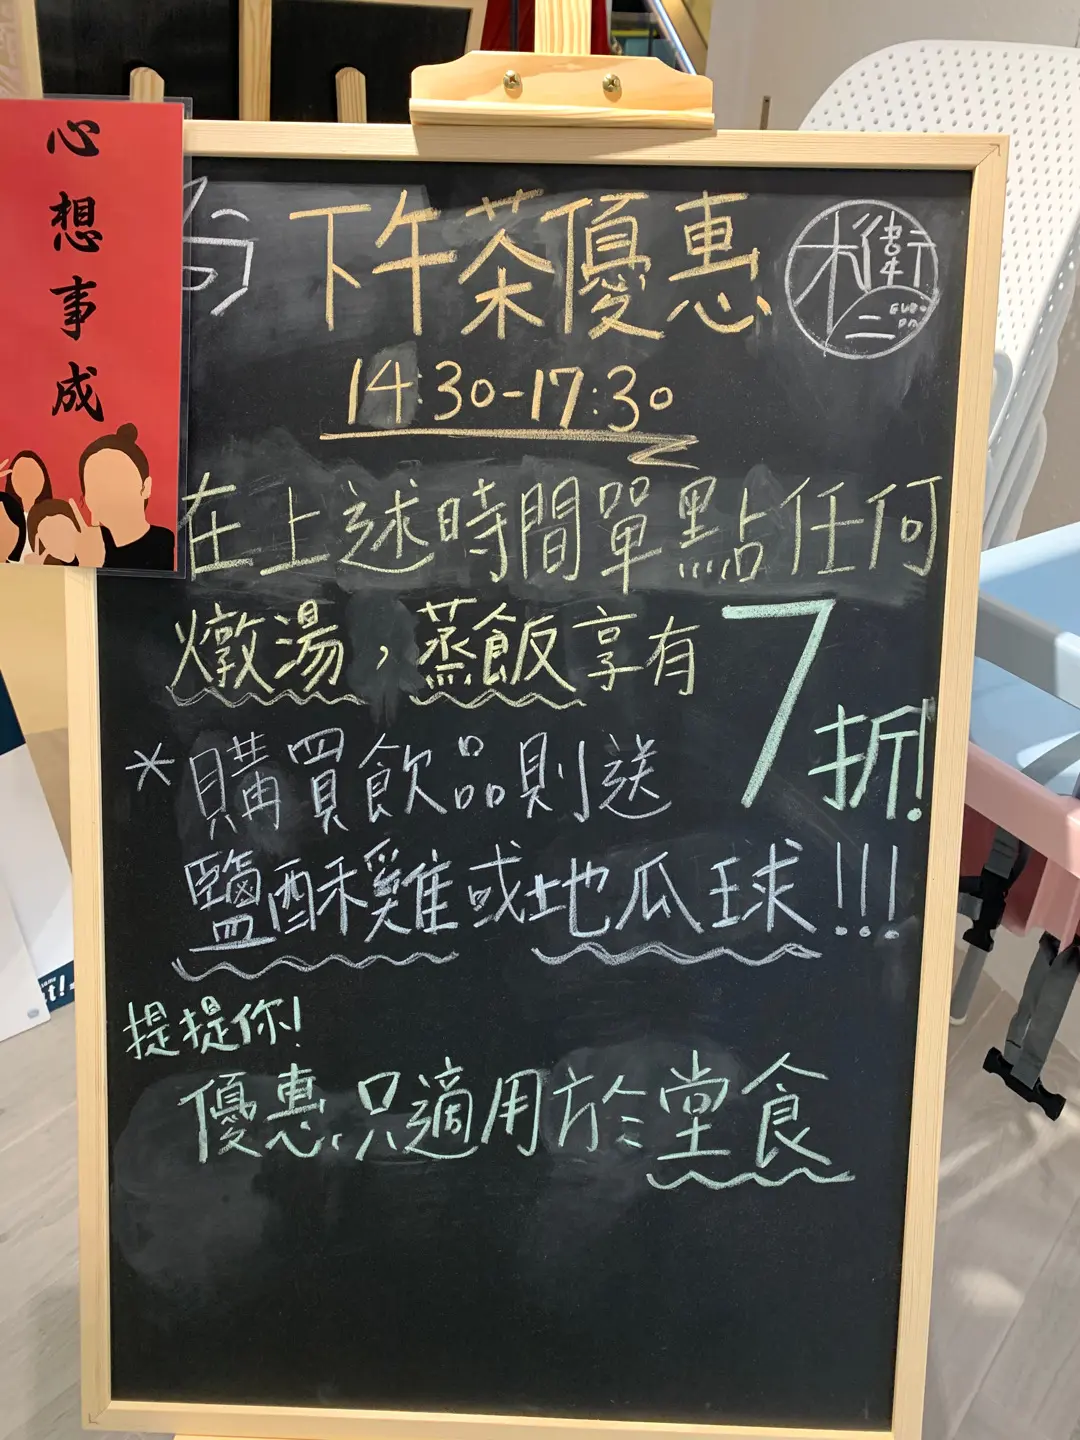 心想事成
下午茶優惠
14:30-17:30
在上述時間單點任何
燉湯，蒸飯享有7折!
*購買飲品則送
鹽酥雞或地瓜球!!!
提提你!
優惠只適用於堂食